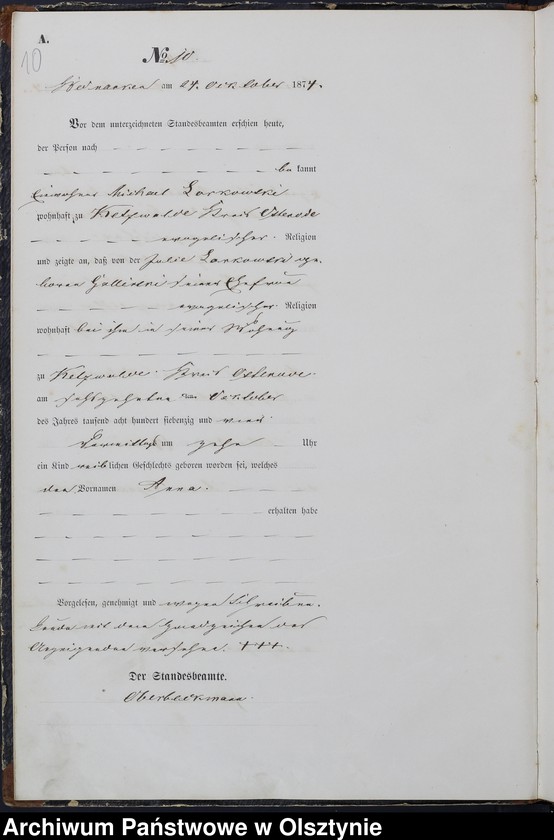 A.
10
No. 10
am 24. Oktober 1874.
Vor dem unterzeichneten Standesbeamten erschien heute,
der Person nach
bekannt
Einwohner Michael Lorkowski
wohnhaft zu Ketzwalde Kreis Osterode
evangelischer Religion
und zeigte an, daß von der Julie Lorkowski ge-
boren seiner Ehefrau
evangelischer Religion
wohnhaft bei ihm in seiner Wohnung
zu Ketzwalde Kreis Osterode
am Oktober
des Jahres tausend acht hundert siebenzig und vier
Vormittags um zehn Uhr
ein Kind weiblichen Geschlechts geboren worden sei, welches
den Vornamen Anna.
erhalten habe
Vorgelesen, genehmigt und wegen Schreibens-
kunde mit dem Handzeichen des
Anzeigenden versehen. +++.
Der Standesbeamte.
Oberbeckmann
Archiwum Państwowe w Olsztynie